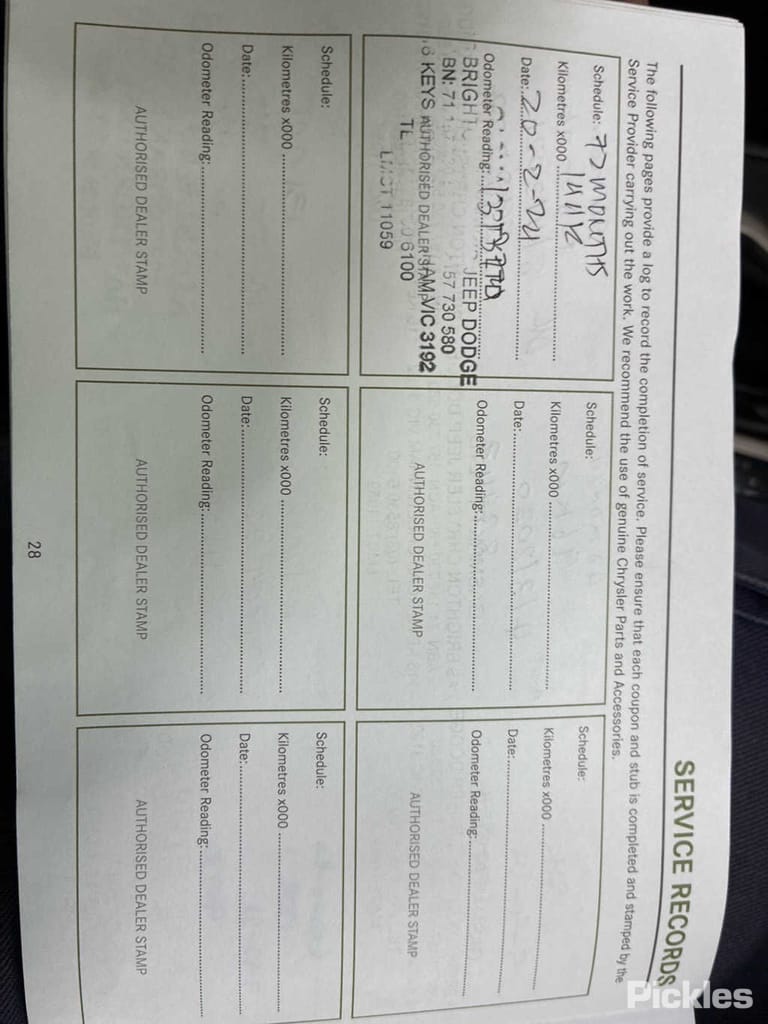 SERVICE RECORDS
The following pages provide a log to record the completion of service. Please ensure that each coupon and stub is completed and stamped by the
Service Provider carrying out the work. We recommend the use of genuine Chrysler Parts and Accessories.
Schedule: 72 MONTHS
Kilometres x000
Date: 20-2-24
Odometer Reading:
JEEP DODGE
BN: 71 57 730 580
KEYS VIC 3192
AUTHORISED DEALER STAMP
6100
LMCT 11059
Schedule:
Kilometres x000
Date:
Odometer Reading:
AUTHORISED DEALER STAMP
Schedule:
Kilometres x000
Date:
Odometer Reading:
AUTHORISED DEALER STAMP
Schedule:
Kilometres x000
Date:
Odometer Reading:
AUTHORISED DEALER STAMP
Schedule:
Kilometres x000
Date:
Odometer Reading:
AUTHORISED DEALER STAMP
Schedule:
Kilometres x000
Date:
Odometer Reading:
AUTHORISED DEALER STAMP
28
Pickles